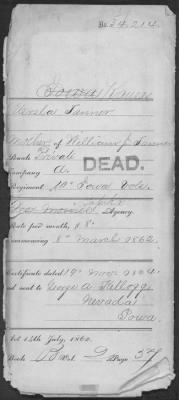 No. 34,214
Iowa
Mother of William J. Tanner
Rank Private
DEAD.
Company A.
Regiment 10" Iowa Vols.
Des Moines Agency.
Rate per month, $8.
Commencing 8" March 1862.
Certificate dated 19" Nov 1864
and sent to George A. Kellogg
Nevada
Iowa.
Act 14th July, 1862.
Book B Vol. 2 Page 57